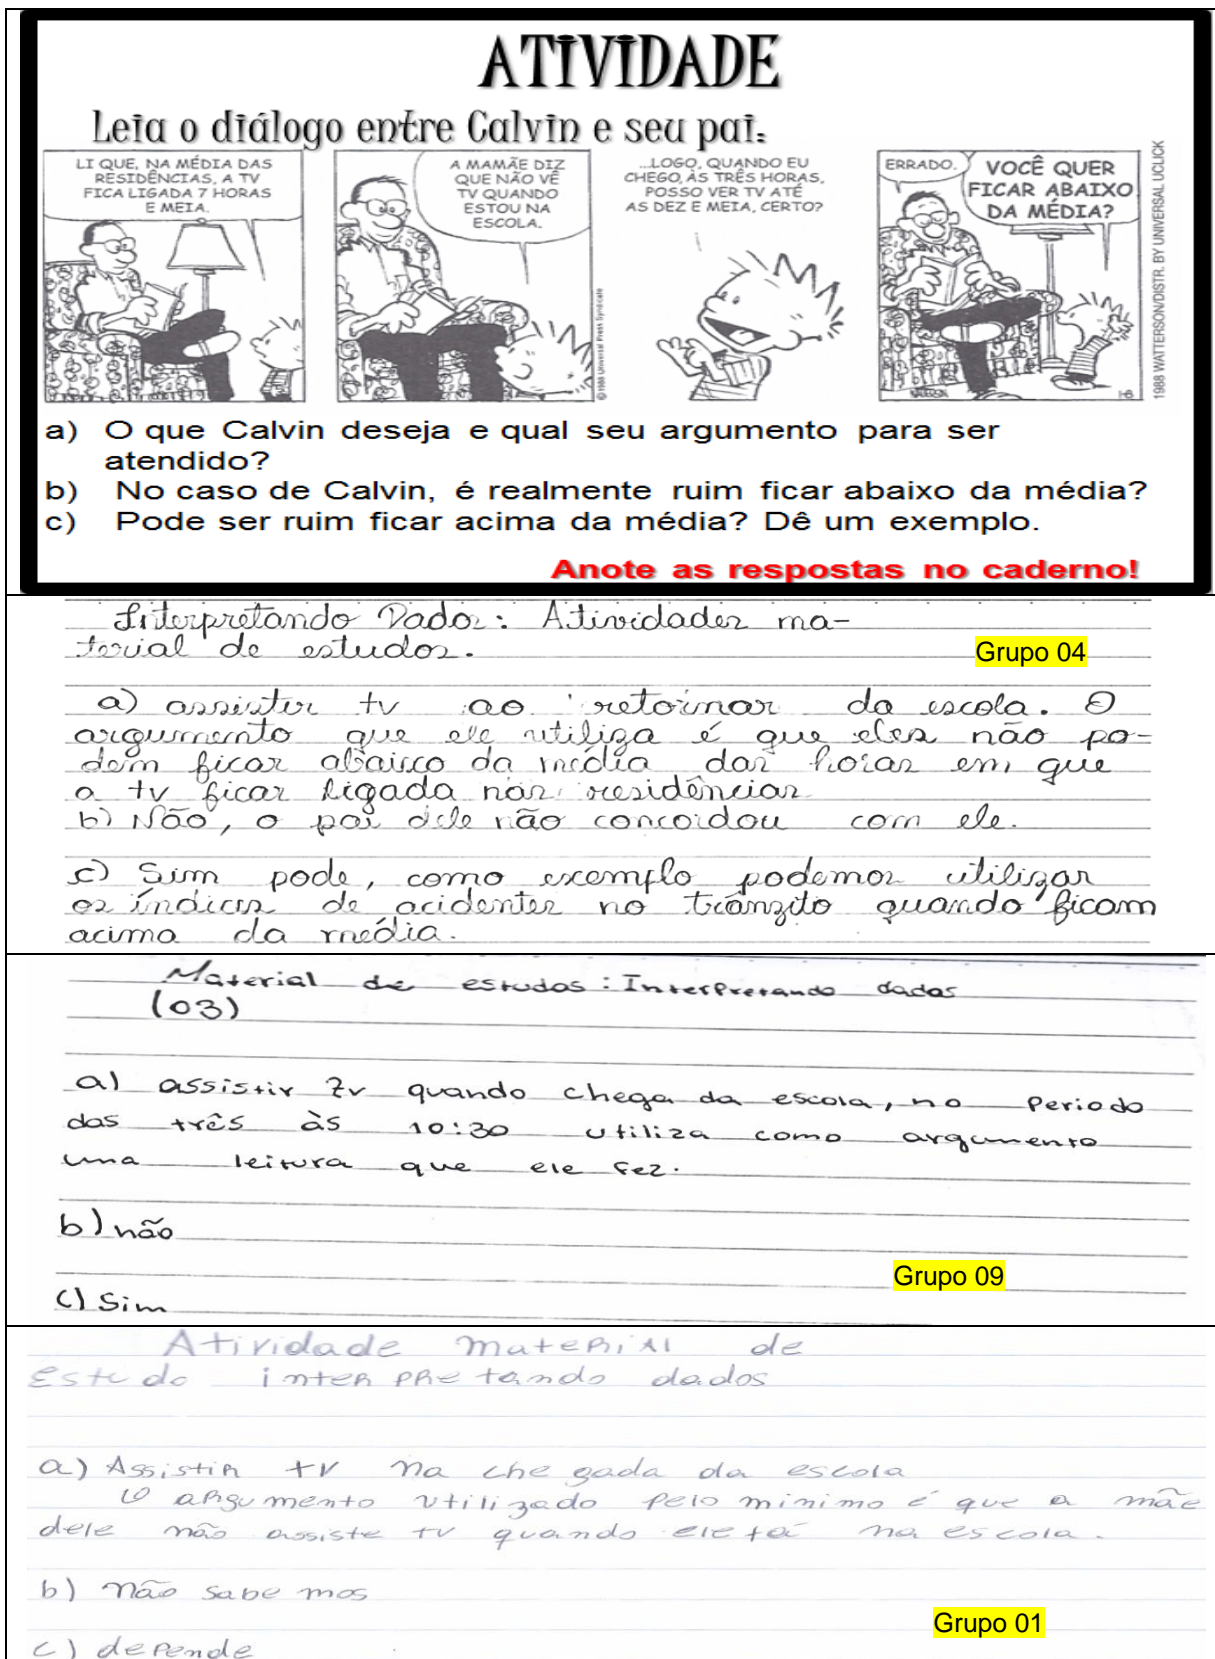 ATIVIDADE
Leia o diálogo entre Calvin e seu pai.
LI QUE, NA MÉDIA DAS
RESIDÊNCIAS, A TV
FICA LIGADA 7 HORAS
E MEIA.
A MAMÃE DIZ
QUE NÃO VÊ
TV QUANDO
ESTOU NA
ESCOLA.
...LOGO, QUANDO EU
CHEGO, ÀS TRÊS HORAS,
POSSO VER TV ATÉ
AS DEZ E MEIA, CERTO?
ERRADO.
VOCÊ QUER
FICAR ABAIXO
DA MÉDIA?
©1988 Universal Press Syndicate
WATTERSON
1-8
1988 WATTERSON/DISTR. BY UNIVERSAL UCLICK
a) O que Calvin deseja e qual seu argumento para ser
atendido?
b) No caso de Calvin, é realmente ruim ficar abaixo da média?
c) Pode ser ruim ficar acima da média? Dê um exemplo.
Anote as respostas no caderno!
Interpretando Dados: Atividades ma-
terial de estudos.
Grupo 04
a) assister tv ao retornar da escola. O
argumento que ele utiliza é que eles não po-
dem ficar abaixo da média das horas em que
a tv ficar ligada nas residências
b) Não, o pai dele não concordou com ele.
c) Sim pode, como exemplo podemos utilizar
os índices de acidentes no trânzito quando ficam
acima da média.
Material de estudos: Interpretando dados
(03)
a) assistir tv quando chega da escola, no periodo
das três às 10:30 utiliza como argumento
uma leitura que ele fez.
b) não
Grupo 09
c) Sim
Atividade material de
Estudo interpretando dados
a) Assistir tv na chegada da escola
O argumento utilizado pelo minimo é que a mãe
dele não assiste tv quando ele tá na escola.
b) não sabemos
Grupo 01
c) depende